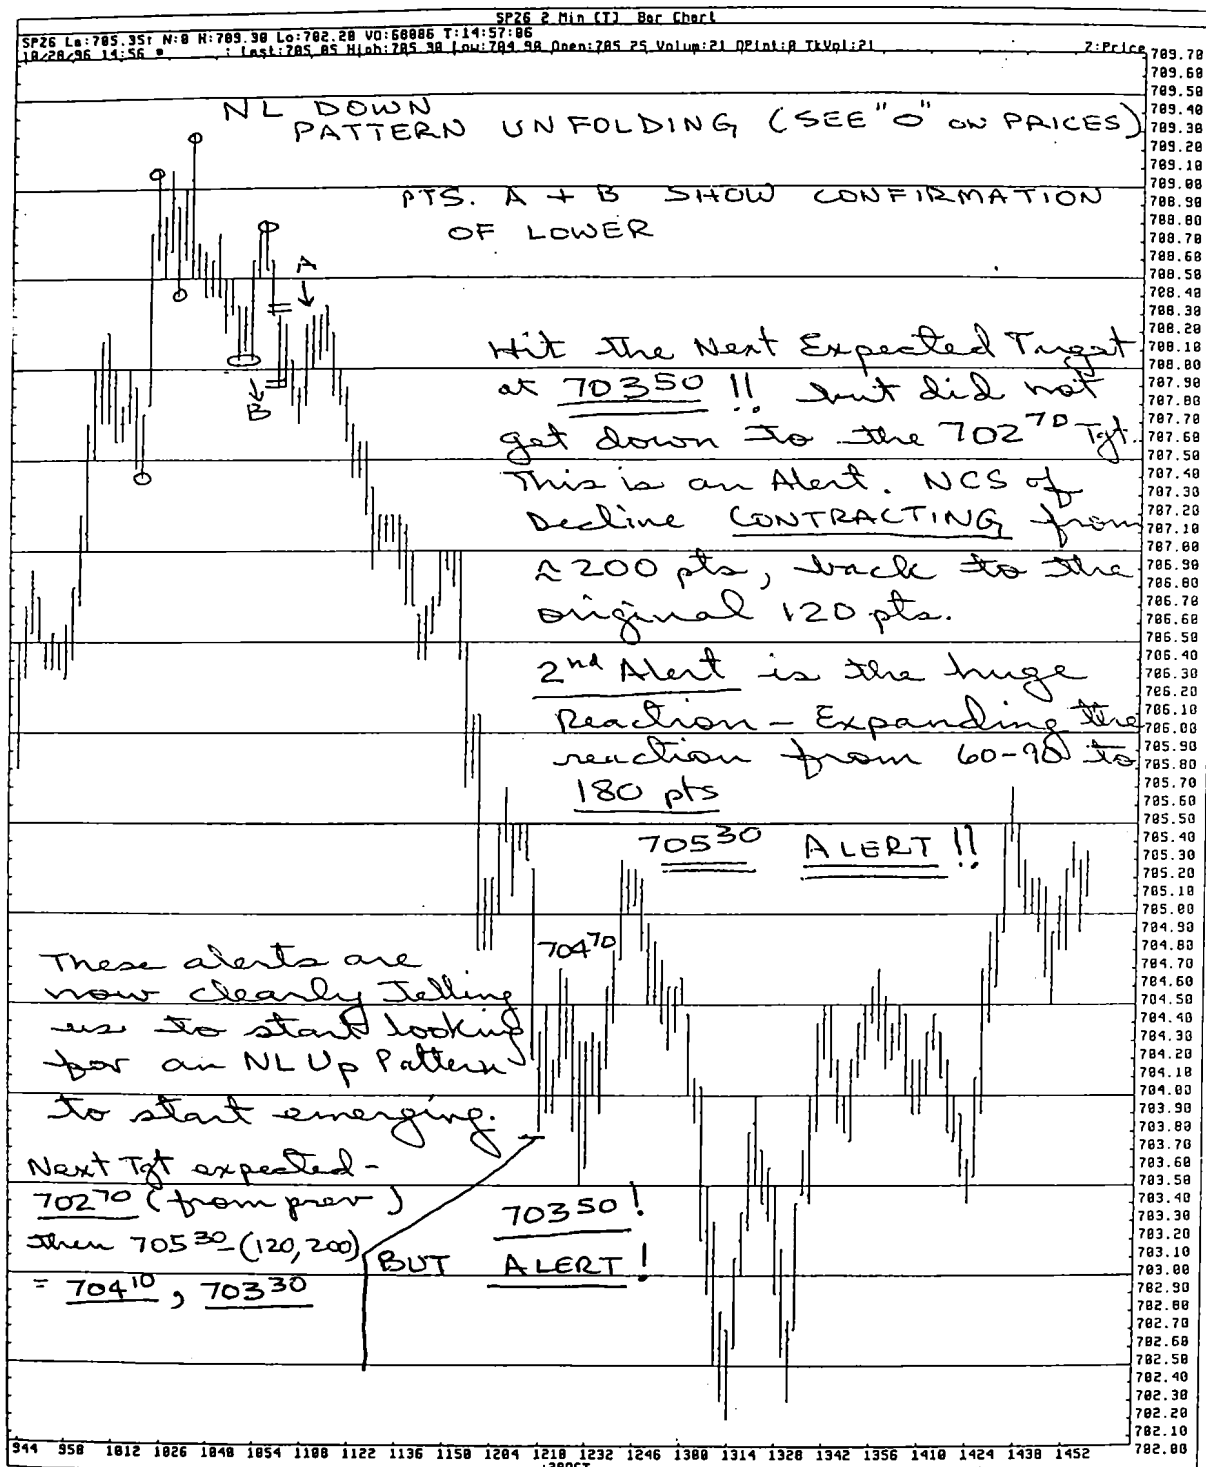 SP26 2 Min (T) Bar Chart
SP26 La:705.35↑ N:0 H:709.30 Lo:702.20 VO:60086 T:14:57:06
10/28/96 14:56 : Last:705.05 High:705.30 Low:704.90 Open:705.25 Volum:21 OPInt:0 TkVol:21 2:Price
NL DOWN
PATTERN UNFOLDING (SEE "O" ON PRICES)
PTS. A + B SHOW CONFIRMATION
OF LOWER
A
B
Hit the Next Expected Target
at 70350 !! but did not
get down to the 70270 Tgt.
This is an Alert. NCS of
Decline CONTRACTING from
≈ 200 pts, back to the
original 120 pts.
2nd Alert is the huge
Reaction - Expanding the
reaction from 60-90 to
180 pts
70530 ALERT !!
70470
These alerts are
now clearly Telling
us to start looking
for an NL Up Pattern
to start emerging.
Next Tgt expected -
70270 (from prev)
then 70530 - (120, 200)
= 70410, 70330
70350 !
BUT ALERT !
709.70
709.60
709.50
709.40
709.30
709.20
709.10
709.00
708.90
708.80
708.70
708.60
708.50
708.40
708.30
708.20
708.10
708.00
707.90
707.80
707.70
707.60
707.50
707.40
707.30
707.20
707.10
707.00
706.90
706.80
706.70
706.60
706.50
706.40
706.30
706.20
706.10
706.00
705.90
705.80
705.70
705.60
705.50
705.40
705.30
705.20
705.10
705.00
704.90
704.80
704.70
704.60
704.50
704.40
704.30
704.20
704.10
704.00
703.90
703.80
703.70
703.60
703.50
703.40
703.30
703.20
703.10
703.00
702.90
702.80
702.70
702.60
702.50
702.40
702.30
702.20
702.10
702.00
944 958 1012 1026 1040 1054 1108 1122 1136 1150 1204 1218 1232 1246 1300 1314 1328 1342 1356 1410 1424 1438 1452